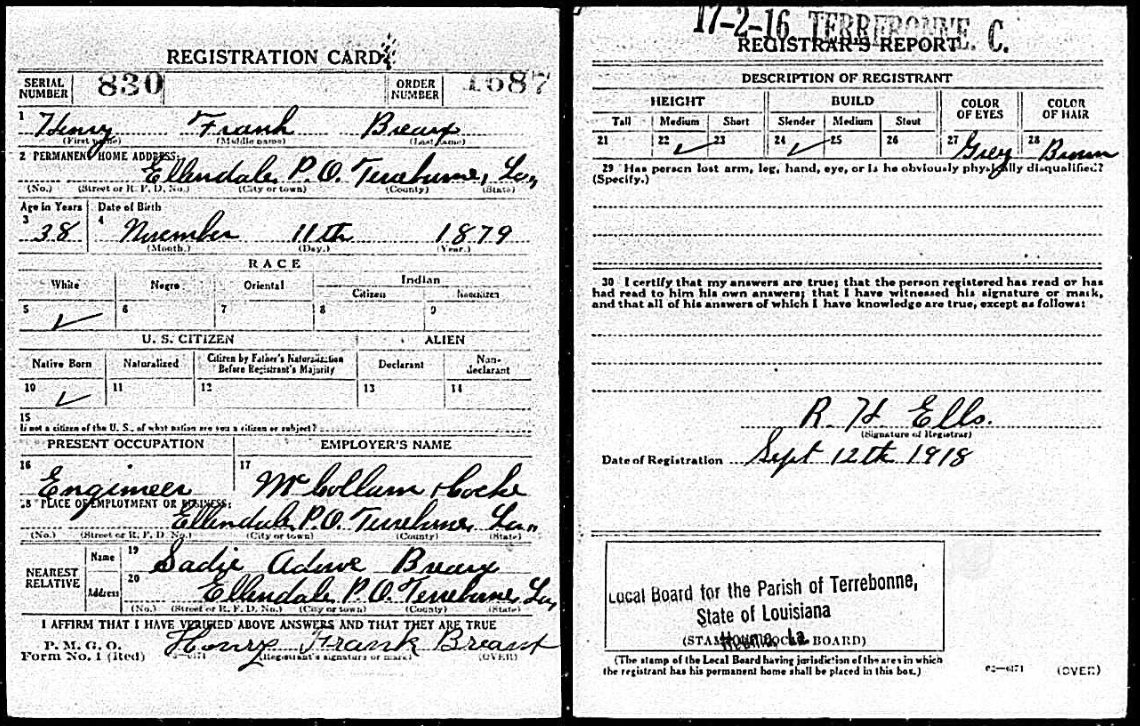 REGISTRATION CARD
SERIAL NUMBER 830 ORDER NUMBER 1687
1 Henry Frank Breaux
(First name) (Middle name) (Last name)
2 PERMANENT HOME ADDRESS:
Ellendale P.O. Terrebonne, La,
(No.) (Street or R. F. D. No.) (City or town) (County) (State)
Age in Years Date of Birth
3 38 4 November 11th 1879
(Month.) (Day.) (Year.)
RACE
White Negro Oriental Indian
Citizen Noncitizen
5 ✓ 6 7 8 9
U. S. CITIZEN ALIEN
Native Born Naturalized Citizen by Father's Naturalization Before Registrant's Majority Declarant Non-declarant
10 ✓ 11 12 13 14
15
If not a citizen of the U. S., of what nation are you a citizen or subject?
PRESENT OCCUPATION EMPLOYER'S NAME
16 Engineer 17 McCollum & Cocke
18 PLACE OF EMPLOYMENT OR BUSINESS:
Ellendale, P.O. Terrebonne, La,
(No.) (Street or R. F. D. No.) (City or town) (County) (State)
NEAREST RELATIVE Name 19 Sadie Breaux
Address 20 Ellendale P.O. Terrebonne, La,
(No.) (Street or R. F. D. No.) (City or town) (County) (State)
I AFFIRM THAT I HAVE VERIFIED ABOVE ANSWERS AND THAT THEY ARE TRUE
P. M. G. O.
Form No. 1 (Red) Henry Frank Breaux
(Registrant's signature or mark) (OVER)
17-2-16 TERREBONNE. C.
REGISTRAR'S REPORT
DESCRIPTION OF REGISTRANT
HEIGHT BUILD COLOR OF EYES COLOR OF HAIR
Tall Medium Short Slender Medium Stout
21 22 ✓ 23 24 ✓ 25 26 27 Grey 28 Brown
29 Has person lost arm, leg, hand, eye, or is he obviously physically disqualified?
(Specify.)
30 I certify that my answers are true; that the person registered has read or has
had read to him his own answers; that I have witnessed his signature or mark,
and that all of his answers of which I have knowledge are true, except as follows:
R. H. Ells.
(Signature of Registrar)
Date of Registration Sept 12th 1918
Local Board for the Parish of Terrebonne,
State of Louisiana
Houma, La
(STAMP OF LOCAL BOARD)
(The stamp of the Local Board having jurisdiction of the area in which
the registrant has his permanent home shall be placed in this box.)
03—6171 (OVER)